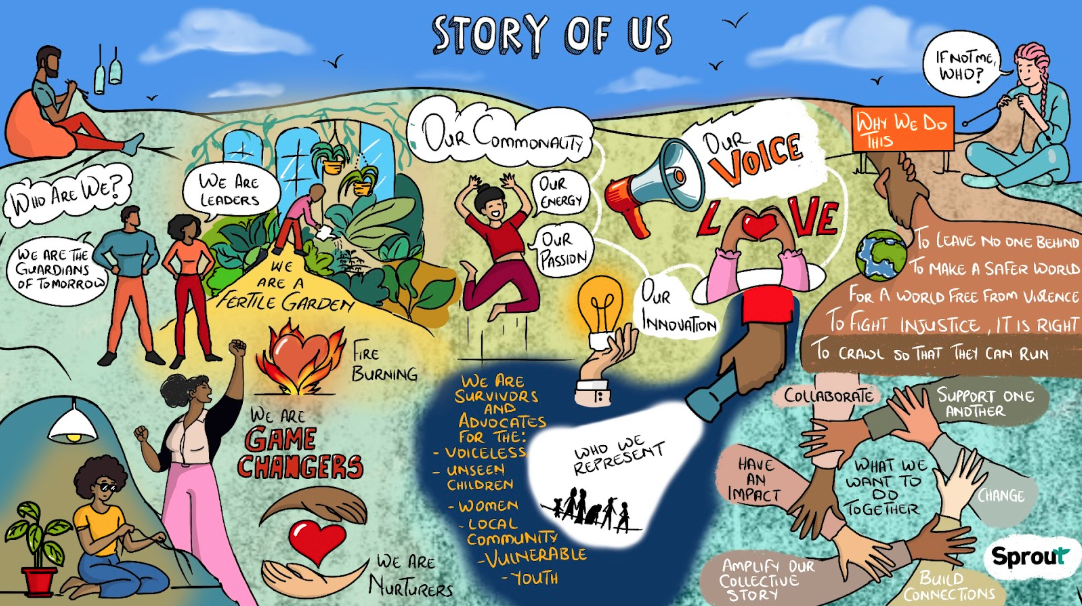 STORY OF US
IF NOT ME,
WHO?
WHY WE DO
THIS
OUR COMMONALITY
OUR
VOICE
WHO ARE WE?
WE ARE
LEADERS
WE ARE THE
GUARDIANS
OF TOMORROW
WE
ARE A
FERTILE GARDEN
OUR
ENERGY
OUR
PASSION
LOVE
OUR
INNOVATION
TO LEAVE NO ONE BEHIND
TO MAKE A SAFER WORLD
FOR A WORLD FREE FROM VIOLENCE
TO FIGHT INJUSTICE, IT IS RIGHT
TO CRAWL SO THAT THEY CAN RUN
FIRE
BURNING
WE ARE
GAME
CHANGERS
WE ARE
NURTURERS
WE ARE
SURVIVORS
AND
ADVOCATES
FOR THE:
- VOICELESS
- UNSEEN
CHILDREN
- WOMEN
- LOCAL
COMMUNITY
- VULNERABLE
- YOUTH
WHO WE
REPRESENT
COLLABORATE
SUPPORT ONE
ANOTHER
HAVE
AN
IMPACT
WHAT WE
WANT TO
DO
TOGETHER
CHANGE
AMPLIFY OUR
COLLECTIVE
STORY
BUILD
CONNECTIONS
Sprout